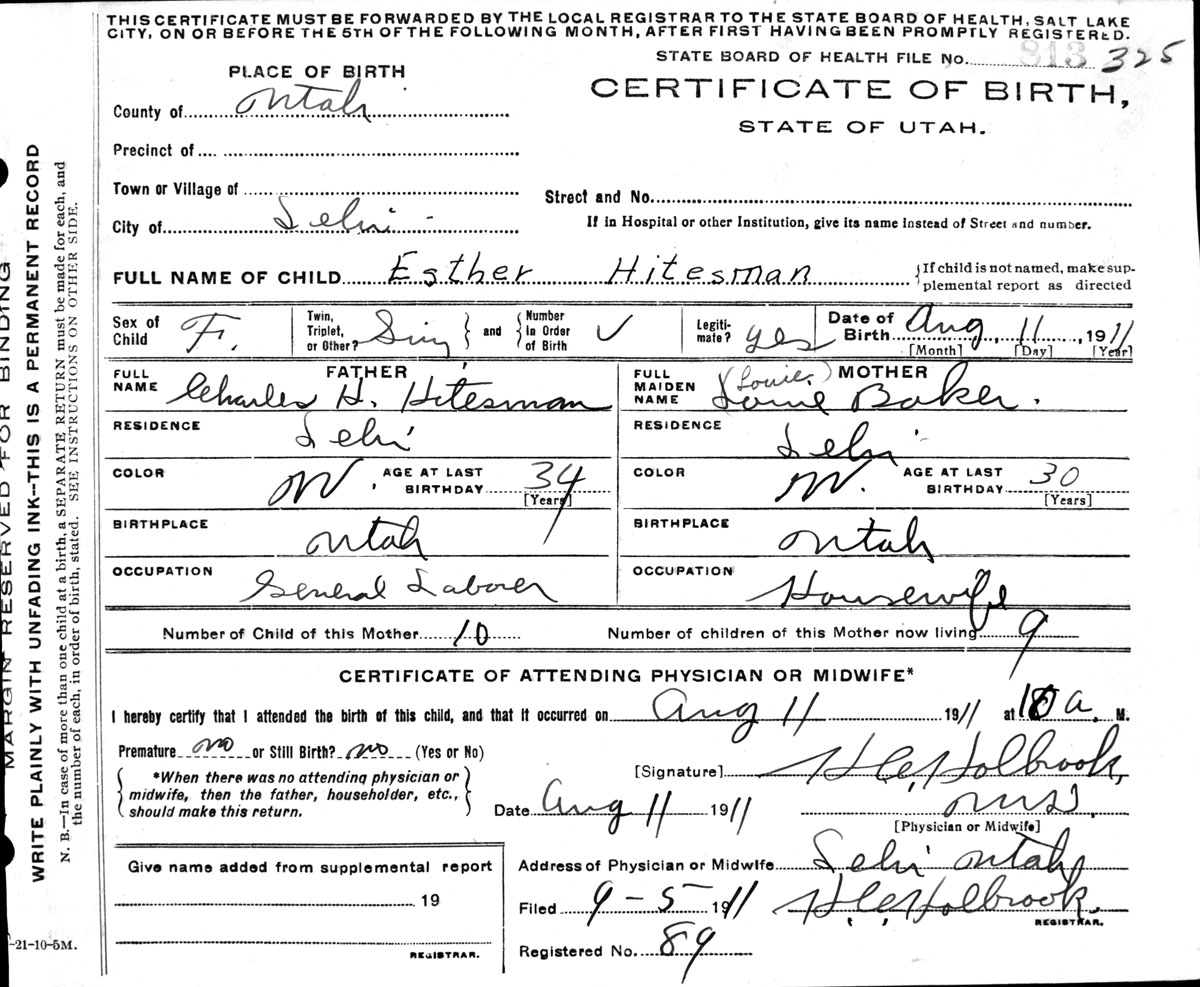 THIS CERTIFICATE MUST BE FORWARDED BY THE LOCAL REGISTRAR TO THE STATE BOARD OF HEALTH, SALT LAKE
CITY, ON OR BEFORE THE 5TH OF THE FOLLOWING MONTH, AFTER FIRST HAVING BEEN PROMPTLY REGISTERED.
STATE BOARD OF HEALTH FILE No. 813 325
PLACE OF BIRTH
CERTIFICATE OF BIRTH,
STATE OF UTAH.
County of Utah
Precinct of
Town or Village of
Street and No.
City of Lehi
If in Hospital or other Institution, give its name instead of Street and number.
FULL NAME OF CHILD Esther Hitesman {If child is not named, make sup-
plemental report as directed
Sex of Child F. Twin, Triplet, or Other? Sing } and { Number in Order of Birth ✓ Legiti-mate? yes Date of Birth Aug, 11, 1911
[Month] [Day] [Year]
FULL NAME FATHER Charles H. Hitesman
FULL MAIDEN NAME MOTHER (Louie.) Louie Baker.
RESIDENCE Lehi
RESIDENCE Lehi
COLOR W. AGE AT LAST BIRTHDAY 34 [Years]
COLOR W. AGE AT LAST BIRTHDAY 30 [Years]
BIRTHPLACE Utah
BIRTHPLACE Utah
OCCUPATION General Laborer
OCCUPATION Housewife
Number of Child of this Mother 10 Number of children of this Mother now living 9
CERTIFICATE OF ATTENDING PHYSICIAN OR MIDWIFE*
I hereby certify that I attended the birth of this child, and that it occurred on Aug 11 1911 at 10 a. M.
Premature no or Still Birth? no (Yes or No)
{ *When there was no attending physician or
midwife, then the father, householder, etc.,
should make this return. }
[Signature] H.C. Holbrook,
Date Aug 11 1911
[Physician or Midwife]
Give name added from supplemental report
19
REGISTRAR.
Address of Physician or Midwife Lehi Utah
Filed 9-5- 1911 H.C. Holbrook.
REGISTRAR.
Registered No. 89
MARGIN RESERVED FOR BINDING
WRITE PLAINLY WITH UNFADING INK--THIS IS A PERMANENT RECORD
N. B.—In case of more than one child at a birth, a SEPARATE RETURN must be made for each, and
the number of each, in order of birth, stated. SEE INSTRUCTIONS ON OTHER SIDE.
-21-10-5M.